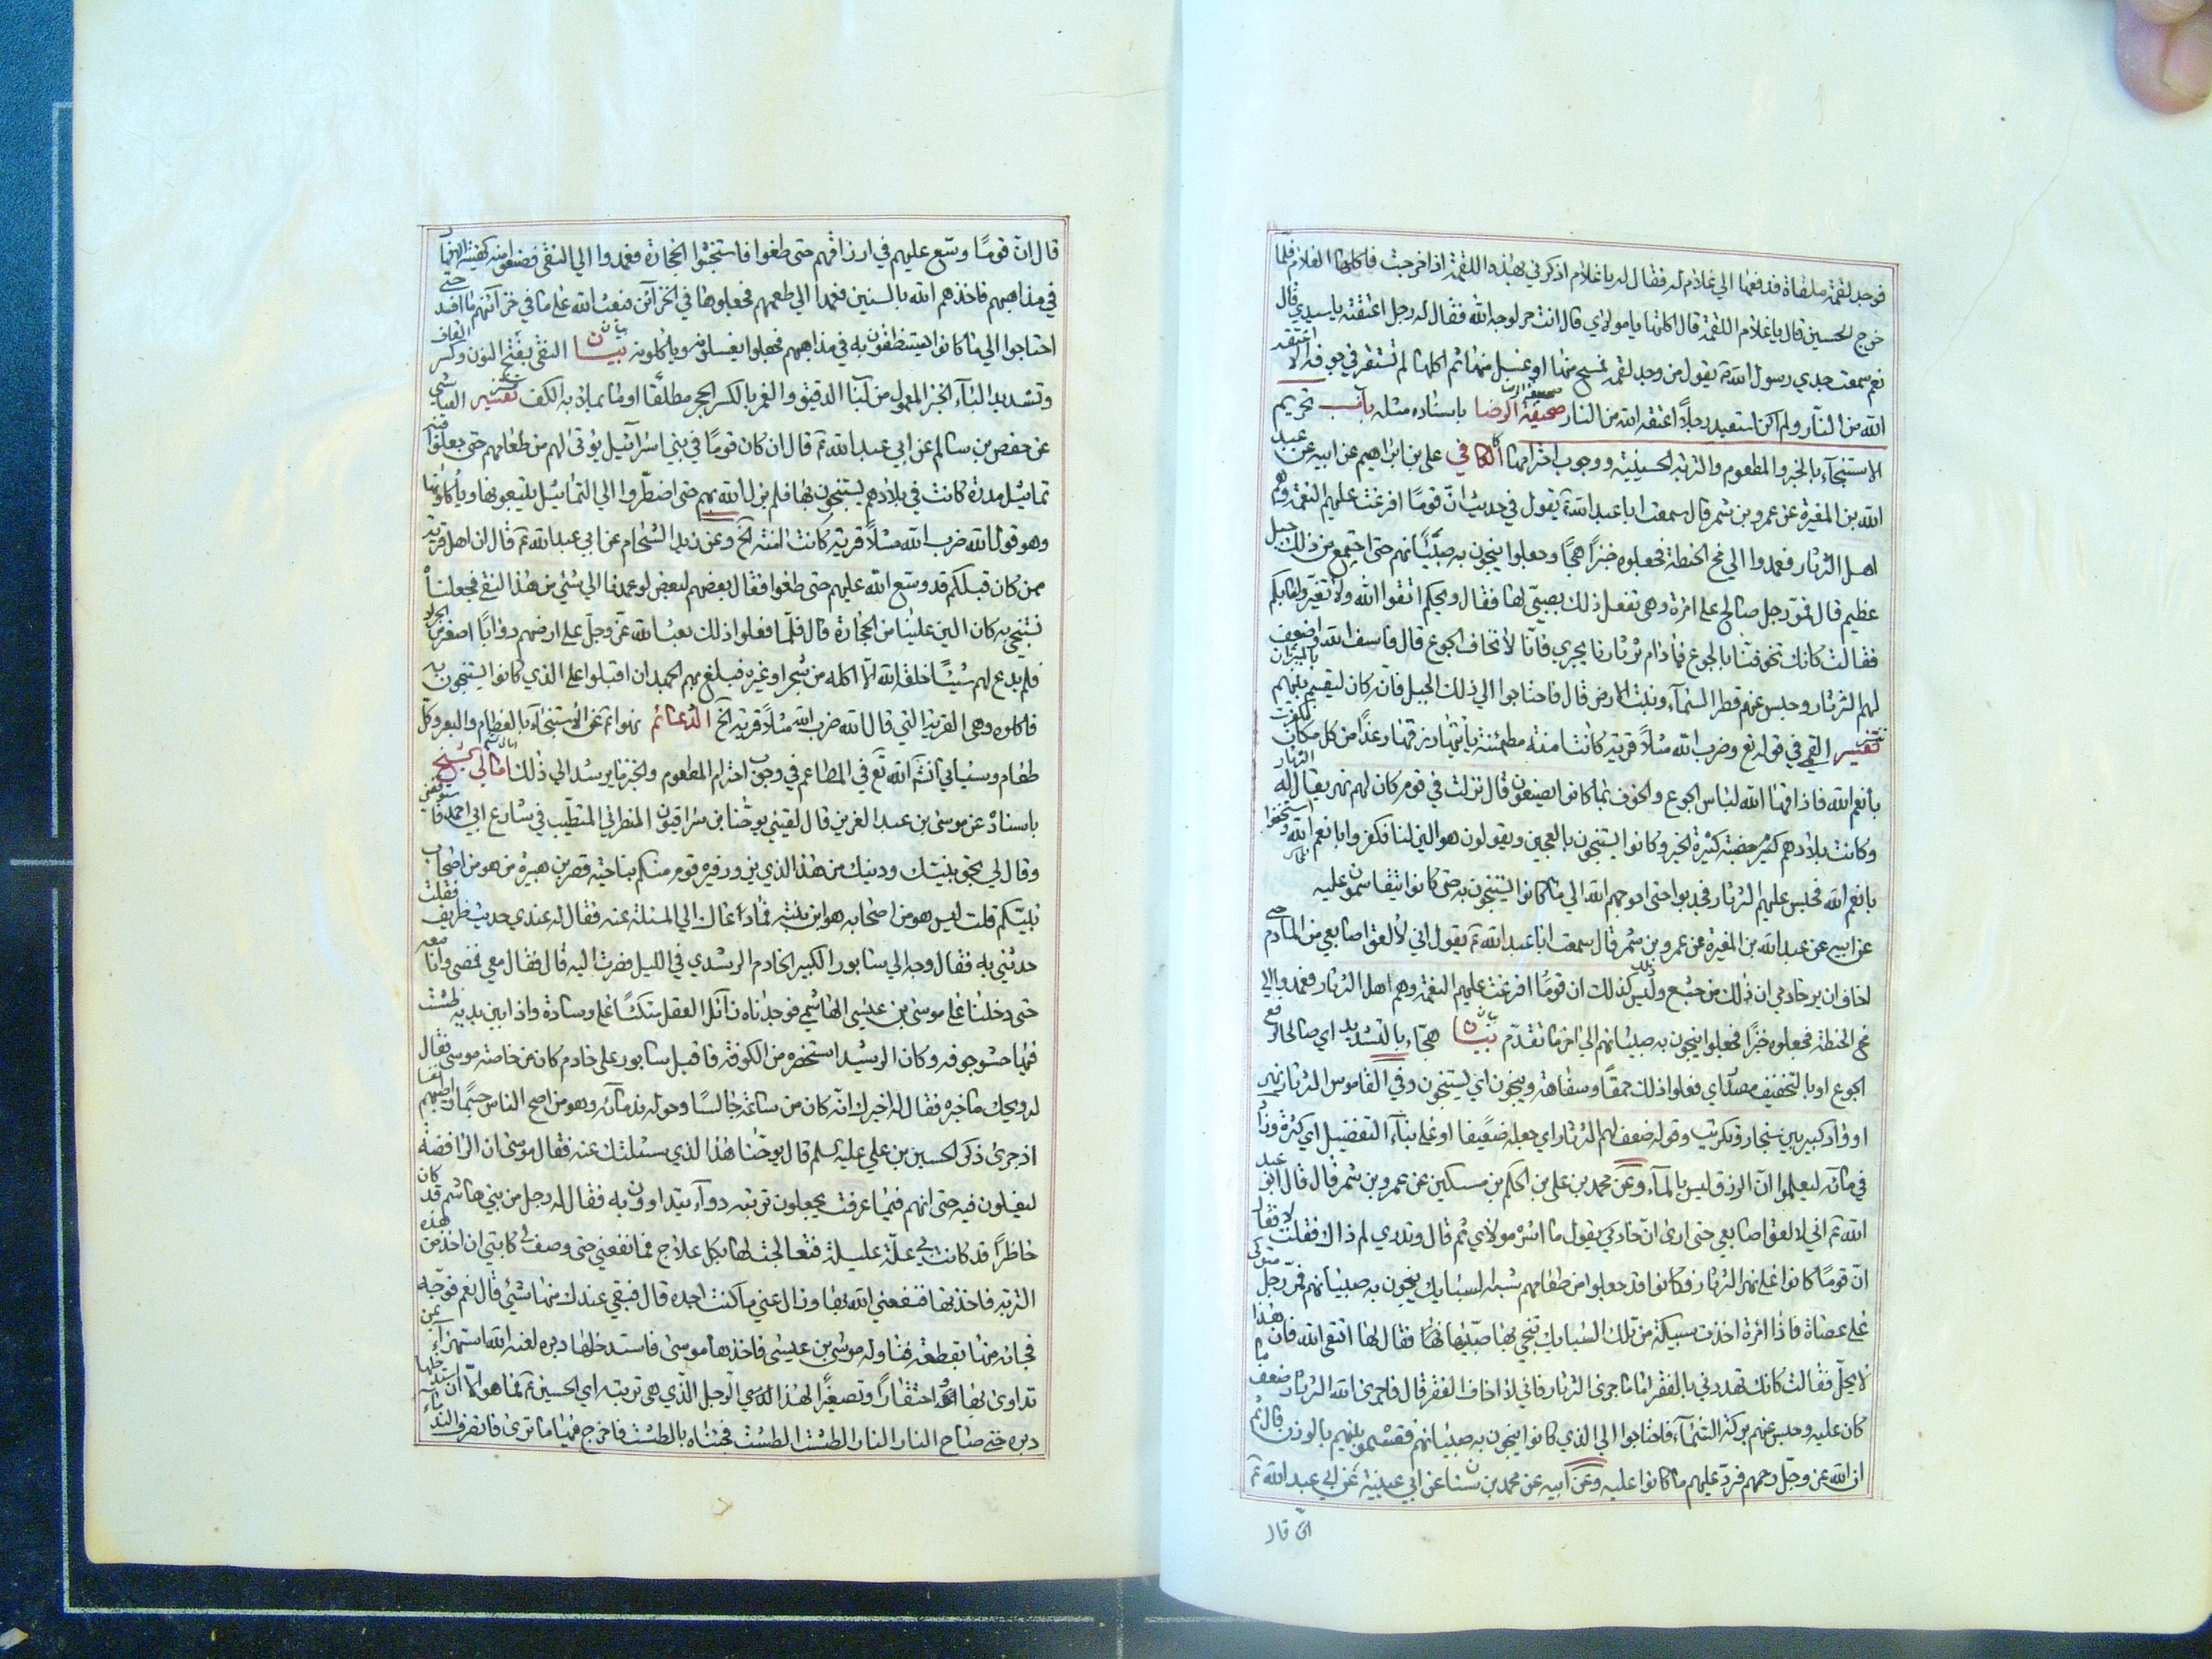 فوجد لقمة ملقاة فدفعها الي غلام له فقال له يا غلام اذكرني بهذه اللقمة اذا خرجت فاكلها الغلام فلما
خرج الحسين قال يا غلام اللقمة قال اكلتها يا مولاي قال انت حر لوجه الله فقال له رجل اعتقته يا سيدي قال
نعم سمعت جدي رسول الله يقول من وجد لقمة فمسح منها او غسل منها ثم اكلها لم تستقر في جوفه الا اعتقه
الله من النار ولم اكن استعبد رجلا اعتقه الله من النار صحيفة الرضا باسناده مثله باب تحريم
الاستنجآء بالخبز والمطعوم والتربة الحسينية ووجوب احترامها الكافي علي بن ابراهيم عن ابيه عن عبد
الله بن المغيرة عن عمرو بن شمر قال سمعت ابا عبد الله يقول في حديث ان قوما افرغت عليهم النعمة وهم
اهل الثرثار فعمدوا الي مخ الحنطة فجعلوه خبزا هجا وجعلوا ينجون به صبيانهم حتي اجتمع من ذلك جبل
عظيم قال فمر رجل صالح علي امرأة وهي تفعل ذلك بصبي لها فقال ويحكم اتقوا الله ولا تغيروا ما بكم
فقالت كانك تخوفنا بالجوع فما دام ثرثارنا يجري فانا لا نخاف الجوع قال فاسف الله واضعف
لهم الثرثار وحبس عنهم قطر السمآء ونبت الارض قال فاحتاجوا الي ذلك الجبل فانه كان ليقسم بينهم بالميزان
تفسير القمي في قوله تع وضرب الله مثلا قرية كانت امنة مطمئنة ياتيها رزقها رغدا من كل مكان فكفرت
بانعم الله فاذاقها الله لباس الجوع والخوف بما كانوا يصنعون قال نزلت في قوم كان لهم نهر يقال له الثرثار
وكانت بلادهم خصبة كثيرة الخير وكانوا يستنجون بالعجين ويقولون هو الين لنا فكفروا بانعم الله واستخفوا
بانعم الله فحبس عليهم الثرثار فجدبوا حتي احوجهم الله الي ما كانوا يستنجون به حتي كانوا يتقاسمون عليه
عن ابيه عن عبد الله بن المغيرة عن عمرو بن شمر قال سمعت ابا عبد الله ع يقول اني لألعق اصابعي من المادم حتي
اخاف ان يري خادمي ان ذلك من جشع وليس كذلك ان قوما افرغت عليهم النعمة وهم اهل الثرثار فعمدوا الي
مخ الحنطة فجعلوه خبزا فجعلوا ينجون به صبيانهم الي اخر ما تقدم بيان هجآء بالتشديد اي صالحا لرفع
الجوع او بالتخفيف مصدر اي فعلوا ذلك حمقا وسفاهة وينجون اي يستنجون وفي القاموس الثرثار نهر
او واد كبير بين سنجار وتكريت وقوله ضعف لهم الثرثار اي جعله ضعيفا او علي بنآء التفعيل اي كثره وزاد
في مائه ليعلموا ان الرزق ليس بالمآء وعن محمد بن علي بن الحكم بن مسكين عن عمرو بن شمر قال قال ابو عبد
الله ع اني لالعق اصابعي حتي اري ان خادمي يقول ما اشره مولاي ثم قال وتدري لم ذاك فقلت لا فقال
ان قوما كانوا علي نهر الثرثار فكانوا قد جعلوا من طعامهم شبه السبايك ينجون به صبيانهم فمر رجل متوكئ
علي عصاة فاذا امرأة اخذت سبيكة من تلك السبايك تنجي بها صبيها فقال لها اتقي الله فان هذا
لا يحل فقالت كانك تهددني بالفقر اما ما جري الثرثار فاني لا اخاف الفقر قال فاجري الله الثرثار ضعف ما
كان عليه وحبس عنهم بركة السمآء فاحتاجوا الي الذي كانوا ينجون به صبيانهم فقسموه بينهم بالوزن قال ثم
ان الله عز وجل رحمهم فرد عليهم ما كانوا عليه وعن ابيه عن محمد بن سنان عن ابي عيينة عن ابي عبد الله ع
قال
قال ان قوما وسع عليهم في ارزاقهم حتي طغوا فاستخشنوا الحجارة فعمدوا الي النقي فصنعوا منه كهيئة الافهار
في مذاهبهم فاخذهم الله بالسنين فعمدوا الي طعمهم فجعلوها في الخزآئن فبعث الله علي ما في خزآئنهم ما افسده حتي
احتاجوا الي ما كانوا يستنظفون به في مذاهبهم فجعلوا يغسلونه وياكلونه بيان النقي بفتح النون وكسر القاف
وتشديد اليآء الخبز المعمول من لباب الدقيق والفهر بالكسر الحجر مطلقا او ما يملا به الكف تفسير العياشي
عن حفص بن سالم عن ابي عبد الله ع قال ان كان قوما في بني اسرآئيل يؤتي لهم من طعامهم حتي جعلوا منه
تماثيل بمدن كانت في بلادهم يستنجون بها فلم يزل الله بهم حتي اضطروا الي التماثيل يتبعونها وياكلونها
وهو قول الله ضرب الله مثلا قرية كانت امنة الخ وعن زيد الشحام عن ابي عبد الله ع قال ان اهل قرية
ممن كان قبلكم قد وسع الله عليهم حتي طغوا فقال بعضهم لبعض لو عمدنا الي شئ من هذا النقي فجعلناه
نستنجي به كان الين علينا من الحجارة قال فلما فعلوا ذلك بعث الله عز وجل علي ارضهم دوابا اصغر من الجراد
فلم يدع لهم شيئا خلقه الله الا اكله من شجر او غيره فبلغ بهم الجهد ان اقبلوا علي الذي كانوا يستنجون به
فاكلوه وهي القرية التي قال الله ضرب الله مثلا قرية الخ الدعائم نهوا ع عن الاستنجاء بالعظام والبعر وكل
طعام وسياتي انشآء الله تع في المطاعم في وجوب احترام المطعوم والخبز ما يرشد الي ذلك امالي الشيخ
باسناده عن موسي بن عبد العزيز قال لقيني يوحنا بن سراقيون النصراني المتطبب في شارع ابي احمد فاستوقفني
وقال لي بحق نبيك ودينك من هذا الذي يزور قبره قوم منكم بناحية قصر بن هبيرة من هو من اصحاب
نبيكم قلت ليس هو من اصحابه هو ابن بنته فما دعاك الي المسئلة عنه فقال له عندي حديث ظريف فقلت
حدثني به فقال وجه الي سابور الكبير الخادم الرشيدي في الليل فصرت اليه قال فقال معي فمضي وانا معه
حتي دخلنا علي موسي بن عيسي الهاشمي فوجدناه زآئل العقل متكئا علي وسادة واذا بين يديه طشت
فيها حشو جوفه وكان الرشيد استحضره من الكوفة فاقبل سابور علي خادم كان من خاصة موسي فقال
له ويحك ما خبره فقال له اخبرك انه كان من ساعة جالسا وحوله ندمائه وهو من اصح الناس جسما واطيبهم نفسا
اذ جري ذكر الحسين بن علي عليه السلم قال يوحنا هذا الذي سئلتك عنه فقال موسي ان الرافضة
ليغلون فيه حتي انهم فيما عرفت يجعلون تربته دوآء يتداوون به فقال له رجل من بني هاشم قد كان
حاضرا قد كانت بي علة غليظة فتعالجت لها بكل علاج فما نفعني حتي وصف لي كاتبي ان اخذ من هذه
التربة فاخذتها فنفعني الله بها وزال عني ما كنت اجده قال فبقي عندك منها شئ قال نعم فوجه
فجائه منها بقطعة فناوله موسي بن عيسي فاخذها موسي فاستدخلها دبره لعنه الله استهزآء بمن
تداوي بها واحتقارا وتصغيرا لهذا الرجل الذي هي تربته اي الحسين ع فما هو الا ان استدخلها
دبره حتي صاح النار النار الطشت الطشت فجئناه بالطشت فاخرج فيها ما تري فانصرف الندماء